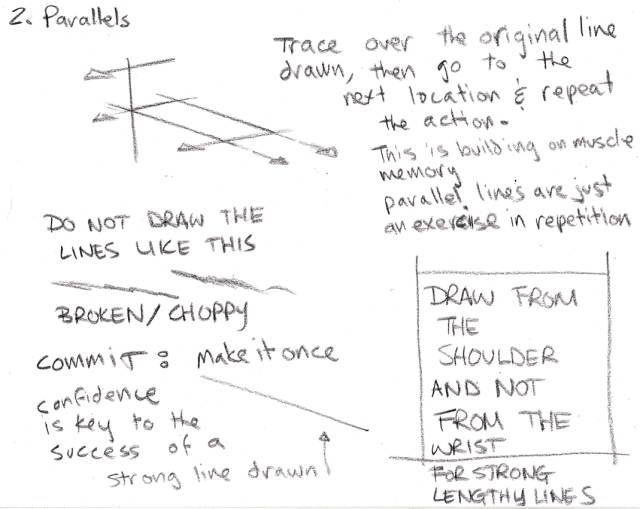 2. Parallels
Trace over the original line
drawn, then go to the
next location & repeat
the action.
This is building on muscle
memory
parallel lines are just
an exercise in repetition
DO NOT DRAW THE
LINES LIKE THIS
BROKEN/CHOPPY
COMMIT: Make it once
confidence
is key to the
success of a
strong line drawn
DRAW FROM
THE
SHOULDER
AND NOT
FROM THE
WRIST
FOR STRONG
LENGTHY LINES